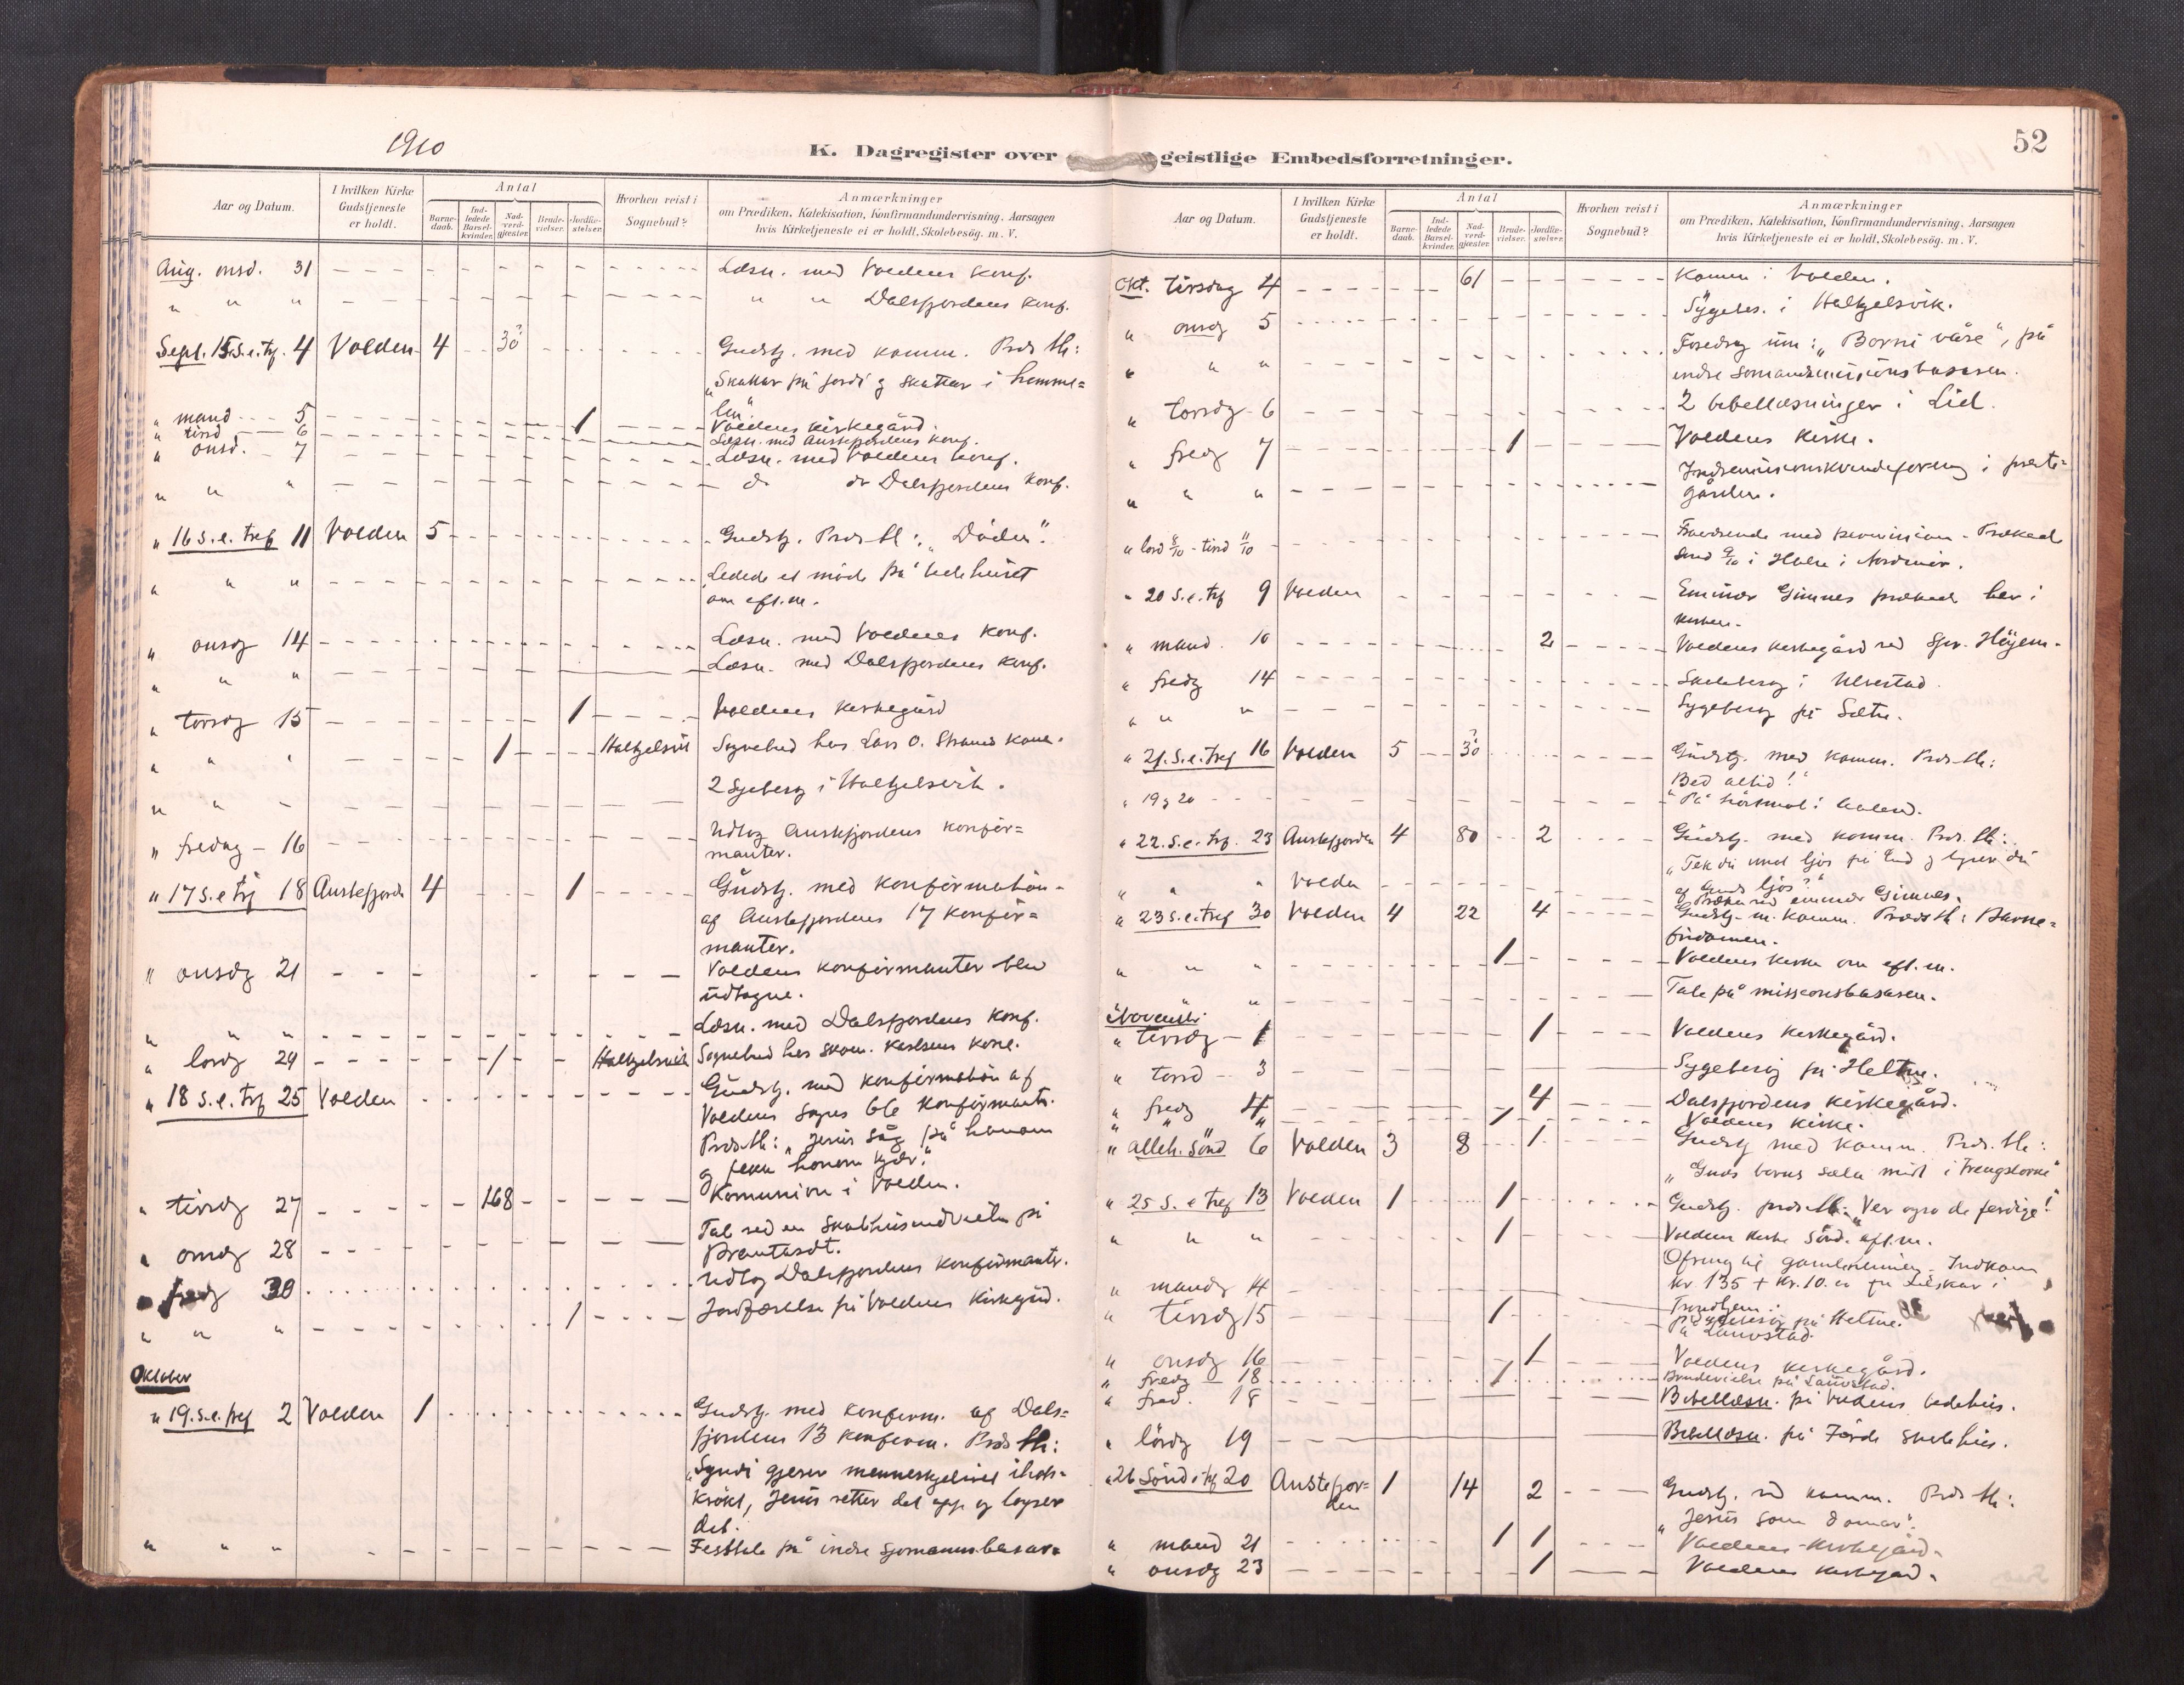 1910
52
K. Dagregister over geistlige Embedsforretninger.
Aar og Datum.
I hvilken Kirke Gudstjeneste er holdt.
Antal
Barne-daab.
Ind-ledede Barsel-kvinder.
Nad-verd-gjester.
Brude-vielser.
Jordfæ-stelser.
Hvorhen reist i Sognebud?
Anmærkninger
om Prædiken, Katekisation, Konfirmandundervisning, Aarsagen
hvis Kirketjeneste ei er holdt, Skolebesög. m. V.
Aug. onsd. 31 Læsn. med Voldens konf.
" " " " " Dalsfjordens konf.
Sept. 15. S. e. trf. 4 Volden 4 30 Gudstj. med komm. Præd. th:
"Skattar på jordi og skattar i himme=
len".
" mand 5 1 Voldens kirkegård.
" tirsd 6 Læsn. med Austefjordens konf.
" onsd. 7 Læsn. med Voldens konf.
" " " do do Dalsfjordens konf.
" 16 s. e. tref 11 Volden 5 Gudstj. Præd. th: "Döden".
" " " Ledede et möde på bedehuset
om eft.m.
" onsdg 14 Læsn. med Voldens konf.
" " " Læsn. med Dalsfjordens konf.
" torsdg 15 1 Voldens kirkegård
" " " 1 Halkjelsvik Sognebud hos Lars O. Strands kone.
" " " 2 Sygebesög i Halkjelsvik.
" fredag 16 Udtog Austefjordens konfir=
manter.
" 17 s. e. trf 18 Austefjorden 4 1 Gudstj. med konfirmation
af Austefjordens 17 konfir=
manter.
" onsdg 21 Voldens konfirmanter blev
udtagne.
" " " Læsn. med Dalsfjordens konf.
" lordg 24 1 Halkjelsvik Sognebud hos skom. Karlsens kone.
" 18 s. e. trf 25 Volden Gudstj. med konfirmation af
Voldens Sogns 66 konfirmanter.
Præd. th: "Jesus såg på honom
og fekk honom kjær."
" tirsdg 27 168 Komunion i Volden.
" onsdg 28 Tal ved en skolehusindvielse på
" fredg 30 Udtog Dalsfjordens konfirmanter.
" " " 1 Jordfæstelse på Voldens kirkegård.
Oktober
" 19. s. e. tref 2 Volden 1 Gudstj. med konfirm. af Dals=
fjordens 13 konfirm. Præd. th:
"Syndi gjerer menneskjelivet ihop-
krökt, Jesus retter det opp og löyser
det.
" " " Festtale på indre sjömannsbasar
Okt. tirsdag 4 61 Komm i Volden.
" onsdg 5 Sygebes. i Halkjelsvik.
" " " Foredrag um: "Borni våre", på
indre somandsmisjonsbasaren.
" torsdg 6 2 bibellæsninger i Lid.
" fredg 7 1 Voldens kirke.
" " " Indremisionskvindeforening i preste-
gården.
" lord 8/10 - tirsd 11/10 Fraværende med permission. Prækede
sönd 9/10 i Halse i Nordmör.
" 20 S. e. trf 9 Volden Eminær Gimnes prækede her i
kirken.
" mand. 10 2 Voldens kirkegård ved Spr. Höydal.
" fredg 14 Skolebesög i Ulvestad.
" " " Sygebesög på Sætre.
" 21. S. e. tref 16 Volden 5 30 Gudstj. med komm. Præd. th:
Bed altid!"
" 19 g 20
" 22. S. e. trf. 23 Austefjorden 4 80 2 Gudstj. med komm. Præd. th:
"Tek du imot ljos frå Gud og lyser du
af Guds ljos?"
" " " Volden Præken ved eminær Gimnes.
" 23 s. e. tref 30 Volden 4 22 4 Gudstj. m. komm. Præd. th: Barne=
fridomen.
" " " 1 Voldens kirke om eft.m.
" Tale på missionsbasaren.
November
" tirsdg 1 1 Voldens kirkegård.
" torsd 3 Sygebesög på Heltne.
" fredg 4 4 Dalsfjordens kirkegård.
" " " 1 Voldens kirke.
" alleh. Sönd 6 Volden 3 8 1 Gudstj med komm. Præd. th:
"Guds borns sæla midt i trengslorne"
" 25 S. e tref 13 Volden 1 1 Gudstj. præd. th: "Ver ogso de ferdige!"
" " " 1 Voldens kirke Sönd. eft.m.
Indkom
kr 135 + kr. 10
" mandg 14
Trondhjem.
" tirsdg 15 1 Sygebesög på Heltne.
" Lauvstad.
" onsdg 16 1 Voldens kirkegård.
" fredg 18 1 Brudevielse på Lauvstad.
" fred. 18 Bibellæsn. på Voldens bedehus.
" lördg 19 Bibellæsn. på Förde skolehus.
" 26 Sönd e. trf 20 Austefjor=
den 1 14 2 Gudstj. m komm. Præd. th:
"Jesus som domar".
" mand 21 1 1 Voldens kirkegård.
" onsdg 23 1 Voldens kirkegård.